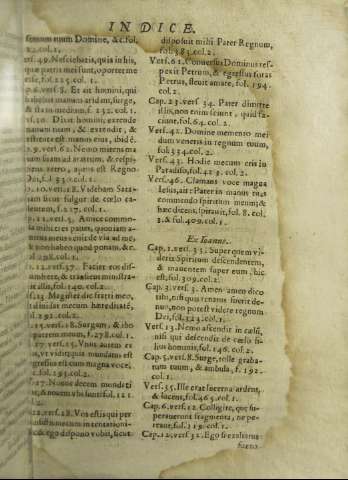 INDICE.
tuum Domine, &c. fol.
col. 1.
vers. 49. Nesciebatis, quia in his,
quæ patris mei sunt, oportet me
col. 1.
p. 6. vers. 8. Et ait homini, qui
habebat manum aridam, surge,
& sta in medium, f. 232. col. 1.
rs. 10. Dixit homini, extende
manum tuam, & extendit, &
restituta est manus eius, ibid é.
9. vers. 62. Nemo mittens ma
num suam ad aratrum, & respi-
ciens retro, aptus est Regno
col. 1.
10. vers. 18. Videbam Sata-
nam sicut fulgur de cœlo ca-
dentem, f. 217. col. 1.
vers. 5. Amice commo-
da mihi tres panes, quoniam a-
micus meus venit de via ad me,
& non habeo quod ponam, &c.
col. 1.
12. vers. 37. Faciet vos dis-
cumbere, & transiens ministra-
bit illis, fol. 140. col. 2.
13. Magister dic fratri meo,
dividat mecum hæreditatē,
col. 2.
15. vers. 18. Surgam, & ibo
patrem meum, f. 278. col. 1.
17. vers. 15. Vnus autem ex
vt vidit quia mundatus est
regressus est cum magna voce,
f. 195. col. 2.
17. Nonne decem mundati
sunt, & novem vbi sunt? fol. 121.
col. 2.
22. vers. 28. Vos estis qui per
mecum in tentationi-
& ego dispono vobis, sicut
disposuit mihi Pater Regnum,
fol. 383. col. 2.
Vers. 61. Conversus Dominus res-
pexit Petrum, & egressus foras
Petrus, flevit amare, fol. 194.
col. 2.
Cap. 23. vers. 34. Pater dimitte
illis, non enim sciunt, quid fa-
ciunt, fol. 64. col. 2.
Vers. 42. Domine memento mei
dum veneris in regnum tuum,
fol. 354. col. 2.
Vers. 43. Hodie mecum eris in
Paradiso, fol. 423. col. 2.
Vers. 46. Clamans voce magna
Iesus, ait: Pater in manus tuas
commendo spiritum meum; &
hæc dicens, spiravit, fol. 8. col.
3. & fol. 409. col. 1.
Ex Ioanne.
Cap. 1. vers. 33. Super quem vi-
deris Spiritum descendentem,
& manentem super eum, hic
est, fol. 309. col. 2.
Cap. 3. vers. 3. Amen amen dico
tibi, nisi quis renatus fuerit de-
nuo, non potest videre regnum
Dei, fol. 123. col. 1.
Vers. 13. Nemo ascendit in cælū,
nisi qui descendit de cælo fi-
lius hominis, fol. 146. col. 2.
Cap. 5. vers. 8. Surge, tolle graba-
tum tuum, & ambula, f. 192.
col. 1.
Vers. 35. Ille erat lucerna ardens,
& lucens, fol. 465. col. 1.
Cap. 6. vers. 12. Colligite, quæ su-
peraverunt fragmenta, ne pe-
reant, fol. 119. col. 1.
Cap. 12. vers. 32. Ego si exaltatus
fuero